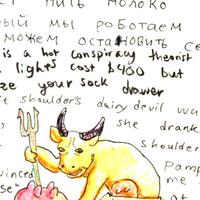 пить молоко
мы работаем
можем остановить се
is a hot conspiracy theorist
lights cost $400 but
your sock drawer
shoulders dairy devil wu
she drank
shoulder
Pam
me